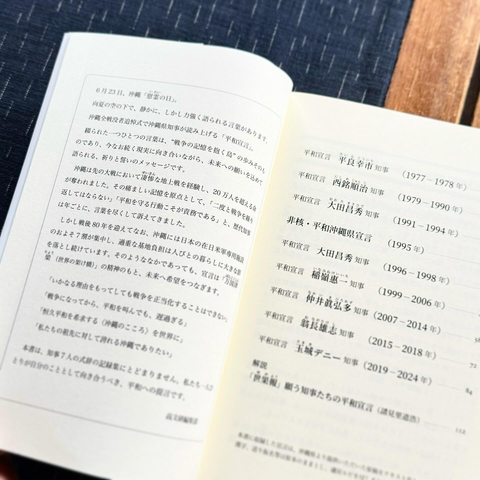 6月23日、沖縄「慰霊の日」。
向夏の空の下で、静かに、しかし力強く語られる言葉があります。
沖縄全戦没者追悼式で沖縄県知事が読み上げる「平和宣言」。
綴られた一つひとつの言葉は、“戦争の記憶を抱く島”の歩みそのも
のであり、今なお続く現実に向き合いながら、未来への願いを込めて
語られる、祈りと誓いのメッセージです。
沖縄は先の大戦において凄惨な地上戦を経験し、20万人を超える命
が奪われました。その痛ましい記憶を原点として、「二度と戦争を繰り
返してはならない」「平和を守る行動こそが責務である」と、歴代知事
は年ごとに、言葉を尽くして訴えてきました。
しかし戦後80年を迎えてなお、沖縄には日本の在日米軍専用施設
のおよそ7割が集中し、過重な基地負担は人びとの暮らしに大きな影
を落とし続けています。そのようななかであっても、宣言は
（世界の架け橋）」の精神のもと、未来へ希望をつなぎます。
「いかなる理由をもってしても戦争を正当化することはできない」
「戦争になってから、平和を叫んでも、遅過ぎる」
「恒久平和を希求する〈沖縄のこころ〉を世界に」
「私たちの祖先に対して誇れる沖縄でありたい」
本書は、知事7人の式辞の記録集にとどまりません。私たち一人ひ
とりが自分のこととして向き合うべき、平和への提言です。
高文研編集部
平和宣言 平良幸市 知事 （1977－1978年）
平和宣言 西銘順治 知事 （1979－1990年）
平和宣言 大田昌秀 知事 （1991－1994年）
非核・平和沖縄県宣言 （1995年）
平和宣言 大田昌秀 知事 （1996－1998年）
平和宣言 稲嶺惠一 知事 （1999－2006年）
平和宣言 仲井眞弘多 知事 （2007－2014年）
平和宣言 翁長雄志 知事 （2015－2018年）
平和宣言 玉城デニー 知事 （2019－2024年）
解説
「世果報」願う知事たちの平和宣言（諸見里道浩）